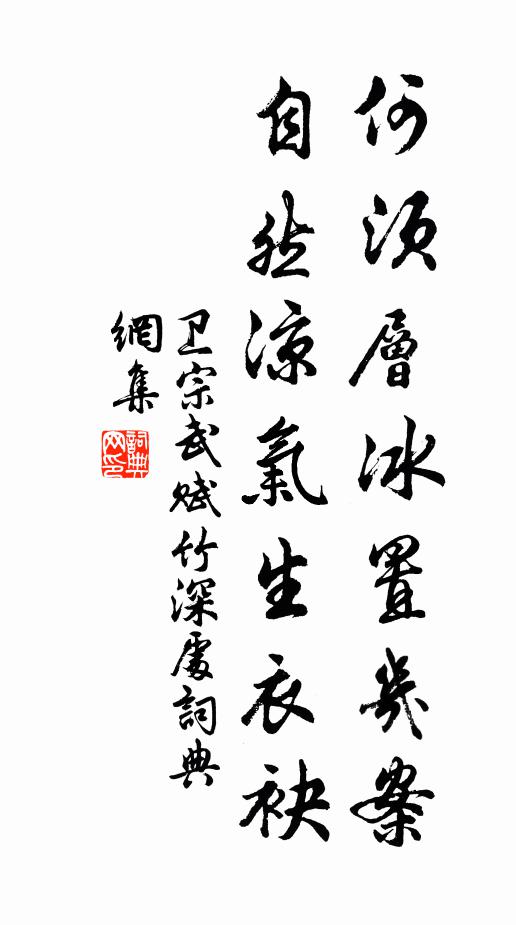 何須層冰置幾案
自然涼氣生衣袂
卫宗武赋竹深處詞典
網集
詞典
网印